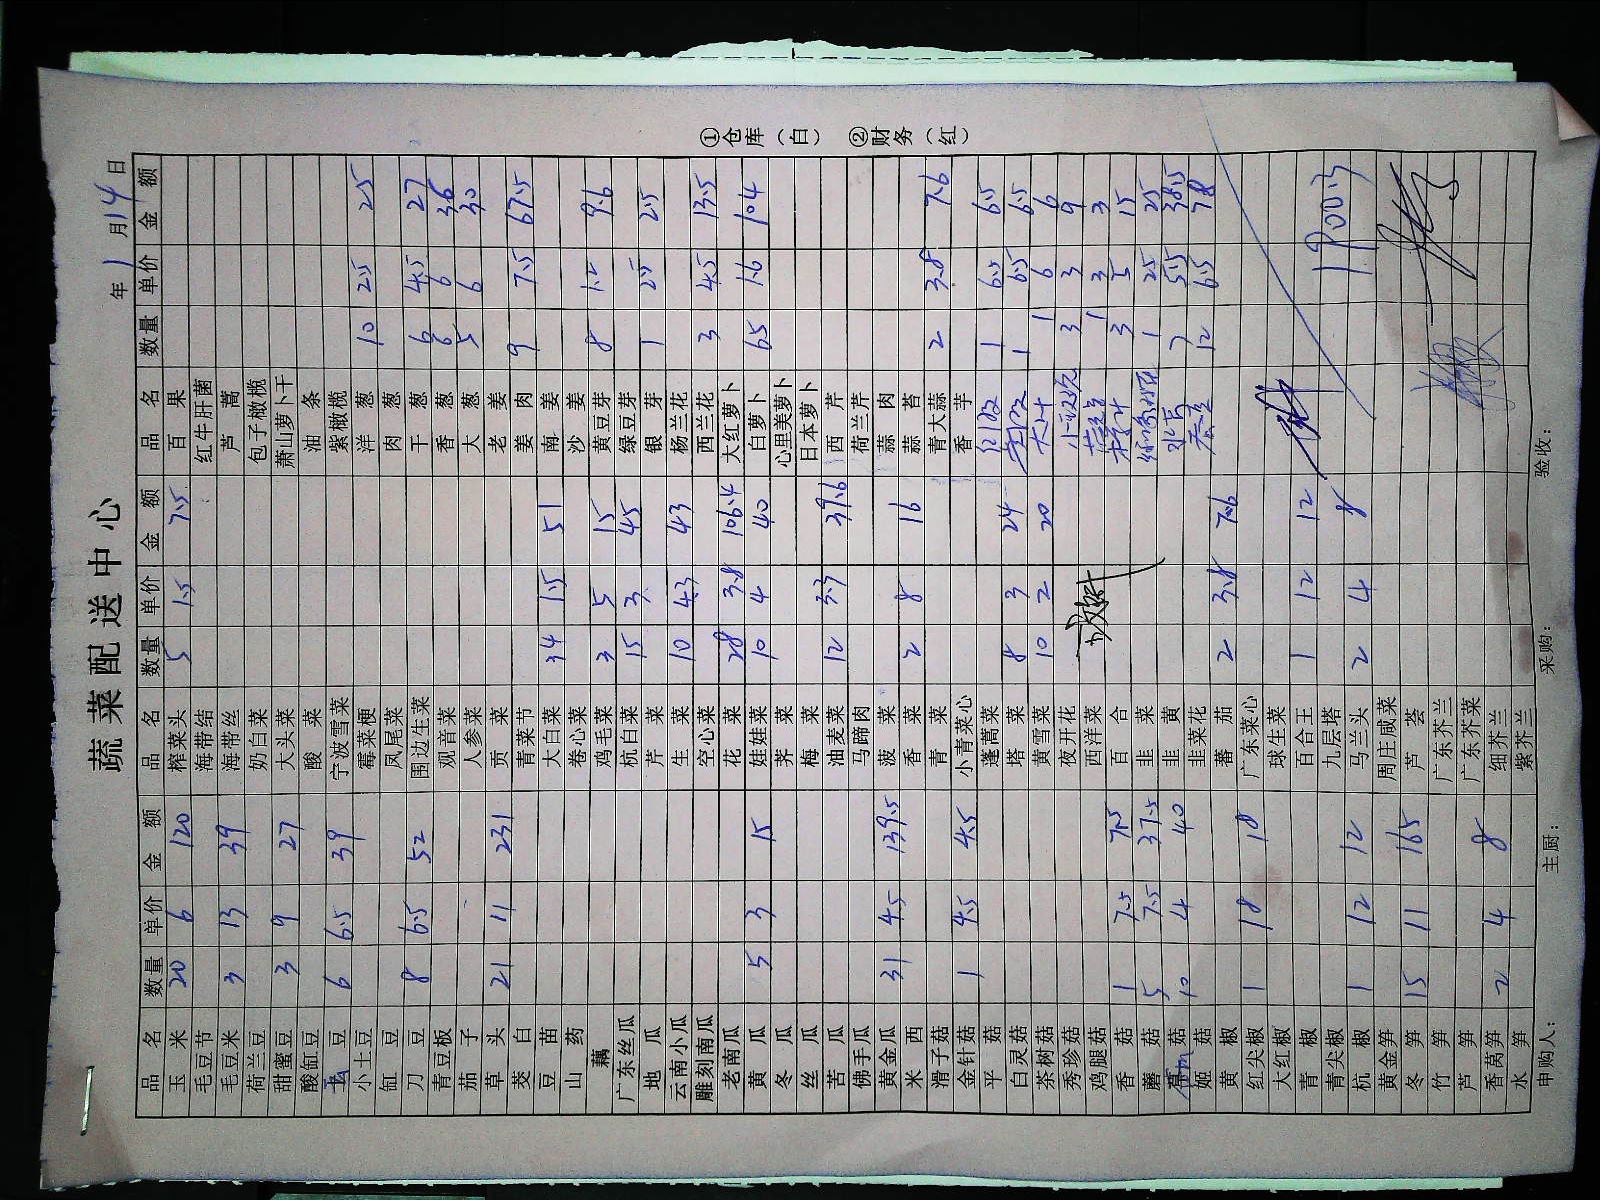 蔬菜配送中心
年 1 月 14 日
品名 数量 单价 金额 品名 数量 单价 金额 品名 数量 单价 金额
玉米 20 6 120 榨菜头 5 1.5 7.5 百果
毛豆节 海带结 红牛肝菌
毛豆米 3 13 39 海带丝 芦蒿
荷兰豆 奶白菜 包子橄榄
甜蜜豆 3 9 27 大头菜 萧山萝卜干
酸缸豆 酸菜 油条
豆 6 6.5 39 宁波雪菜 紫橄榄
小土豆 霉菜梗 洋葱 10 2.5 25
缸豆 凤尾菜 肉葱
刀豆 8 6.5 52 围边生菜 干葱 6 4.5 27
青豆板 观音菜 香葱 6 6 36
茄子 人参菜 大葱 5 6 30
草头 21 11 231 贡菜 老姜
茭白 青菜节 姜肉 9 7.5 67.5
豆苗 大白菜 34 1.5 51 南姜
山药 卷心菜 沙姜
藕 鸡毛菜 3 5 15 黄豆芽 8 1.2 9.6
广东丝瓜 杭白菜 15 3 45 绿豆芽
地瓜 芹菜 银芽 1 2.5 2.5
云南小瓜 生菜 10 4.3 43 杨兰花
雕刻南瓜 空心菜 西兰花 3 4.5 13.5
老南瓜 花菜 28 3.8 106.4 大红萝卜
黄瓜 5 3 15 娃娃菜 10 4 40 白萝卜 65 1.6 104
冬瓜 荠菜 心里美萝卜
丝瓜 梅菜 日本萝卜
苦瓜 油麦菜 12 3.3 39.6 西芹
佛手瓜 马蹄肉 荷兰芹
黄金瓜 31 4.5 139.5 菠菜 蒜肉
米西 香菜 2 8 16 蒜苔
滑子菇 青菜 青大蒜 2 3.8 7.6
金针菇 1 4.5 4.5 小青菜心 香芋
平菇 蓬蒿菜 1 6.5 6.5
白灵菇 塔菜 8 3 24 1 6.5 6.5
茶树菇 黄雪菜 10 2 20 1 6 6
秀珍菇 夜开花 3 3 9
鸡腿菇 西洋菜 1 3 3
香菇 1 7.5 7.5 百合 3 5 15
蘑菇 5 7.5 37.5 韭菜 1 25 25
菇 10 4 40 韭黄 7 5.5 38.5
姬菇 韭菜花 12 6.5 78
黄椒 蕃茄 2 3.8 7.6
红尖椒 1 18 18 广东菜心
大红椒 球生菜
青椒 百合王 1 12 12
青尖椒 九层塔
杭椒 1 12 12 马兰头 2 4 8
黄金笋 周庄咸菜
冬笋 15 11 165 芦荟
竹笋 广东芥兰
芦笋 广东芥菜
香莴笋 2 4 8 细芥兰
水笋 紫芥兰
申购人： 主厨： 采购： 验收：
①仓库（白） ②财务（红）